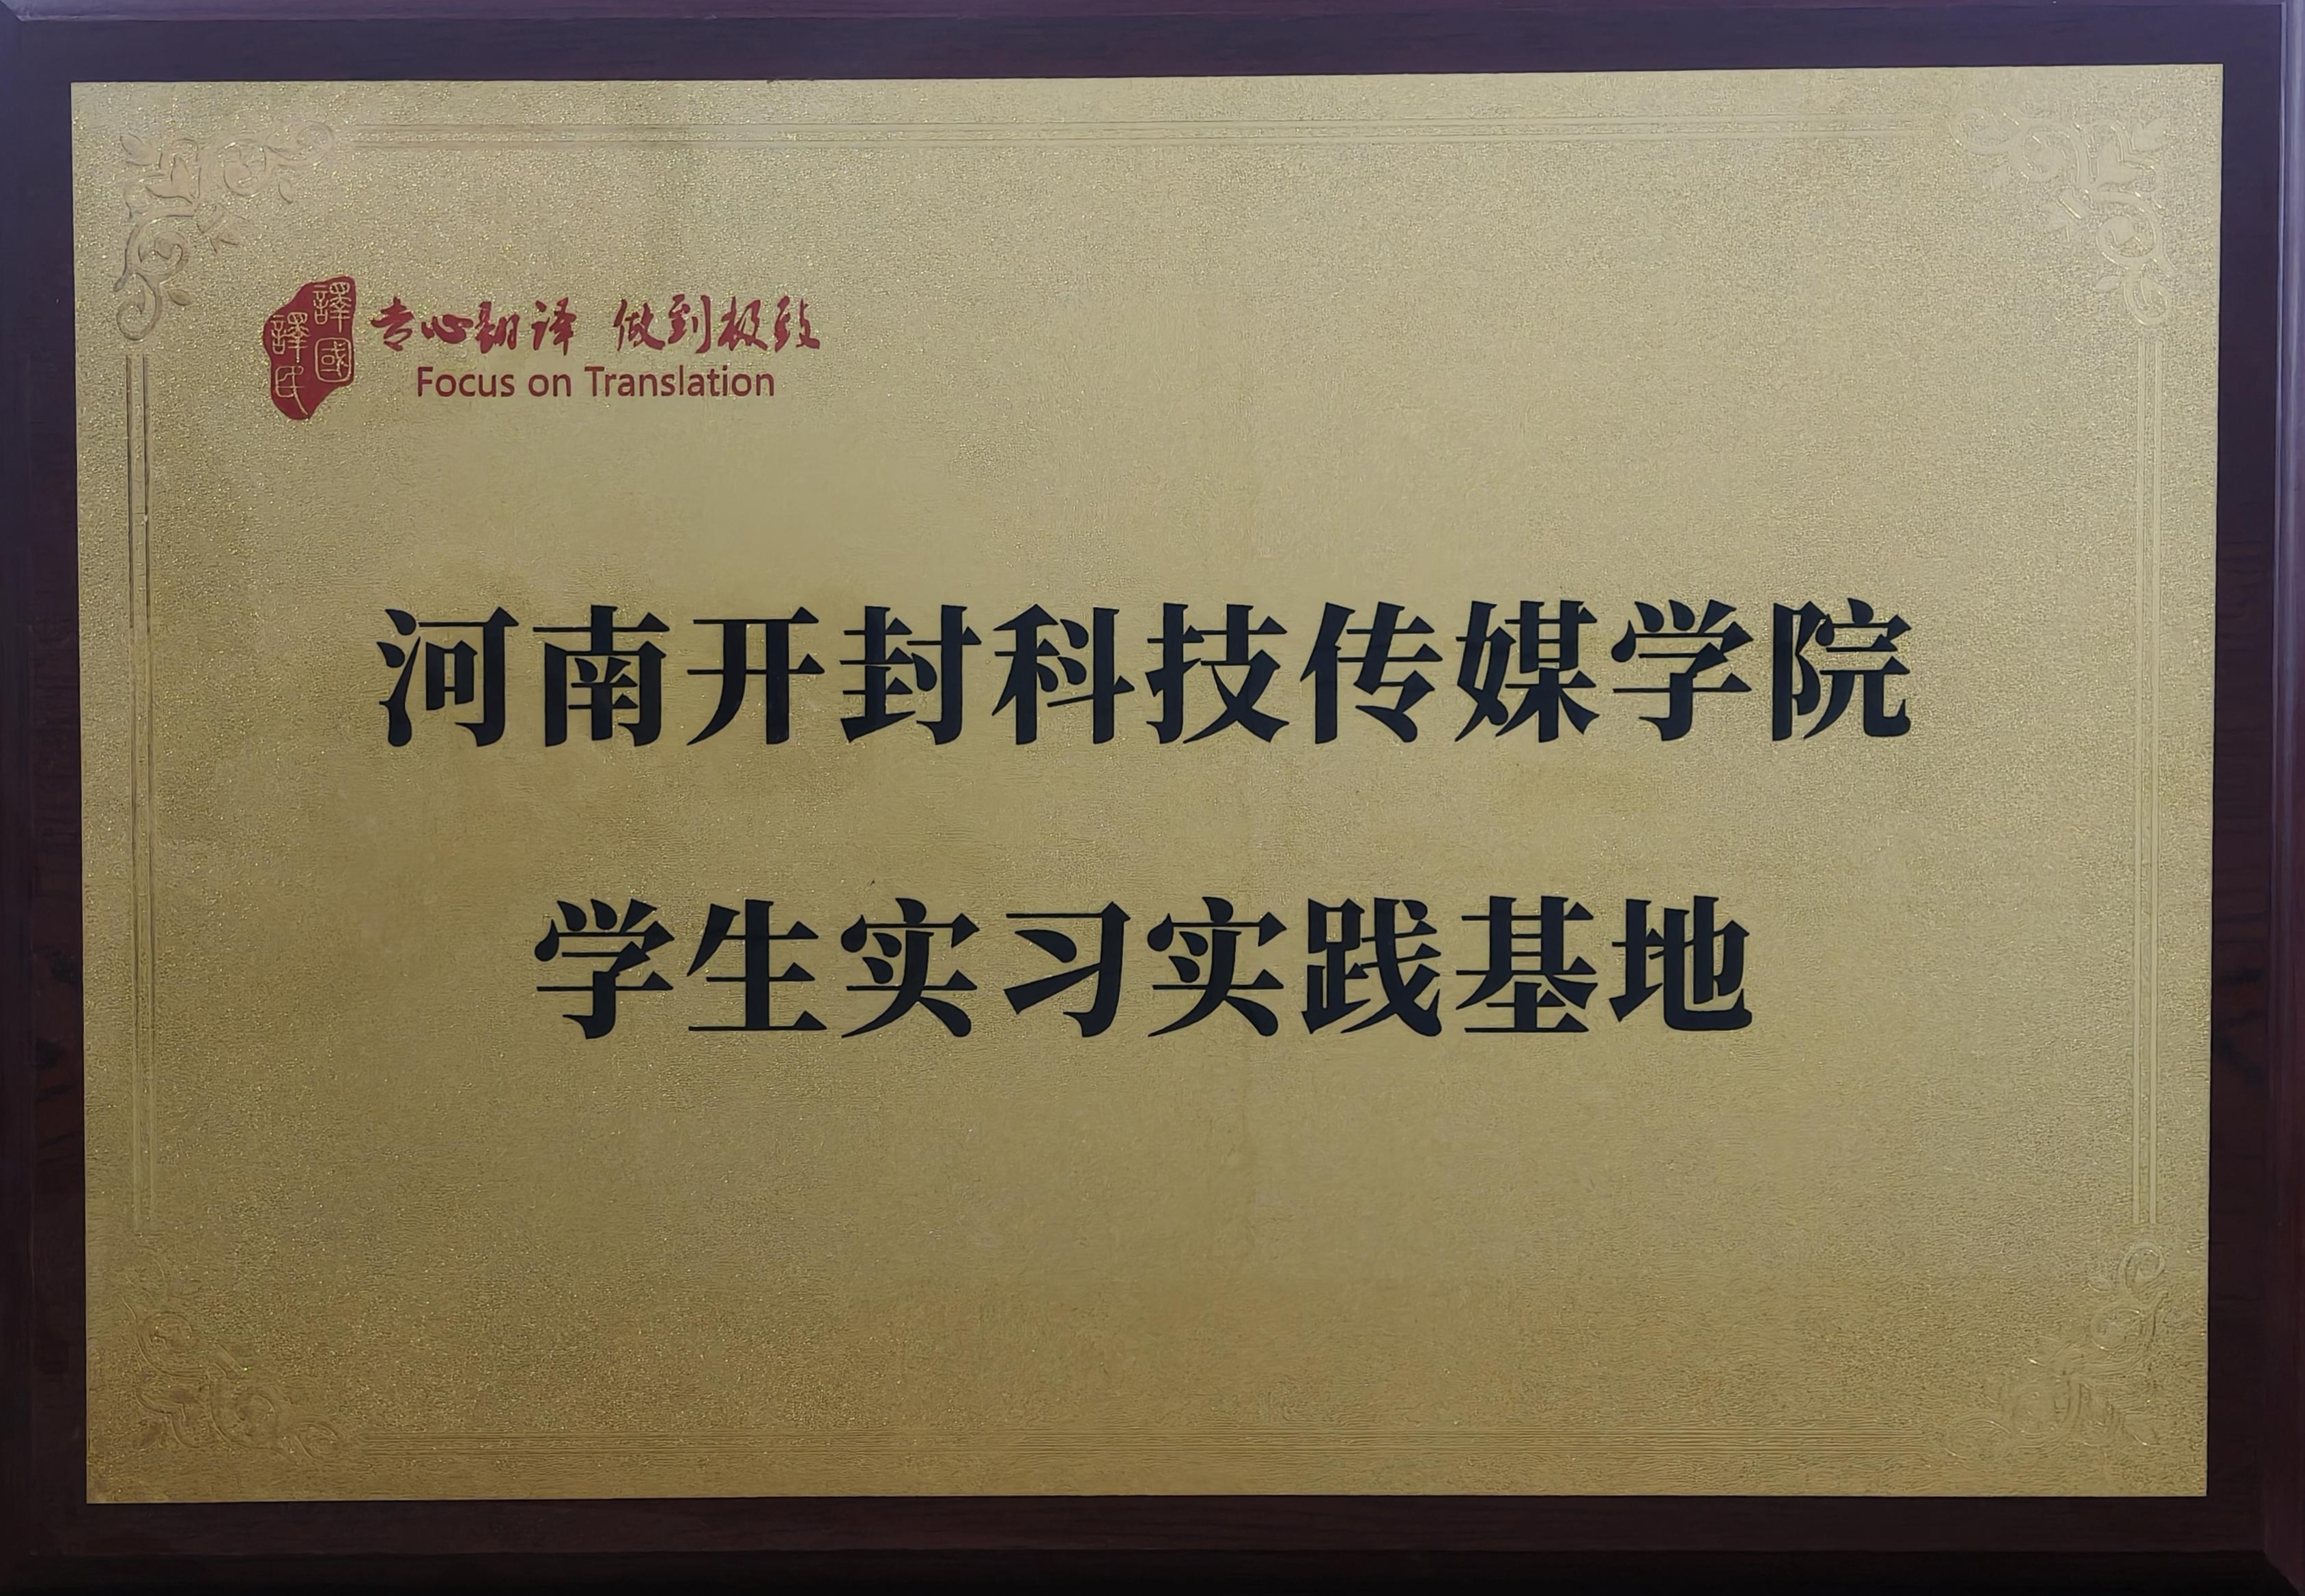 譯國譯民
专心翻译 做到极致
Focus on Translation
河南开封科技传媒学院
学生实习实践基地